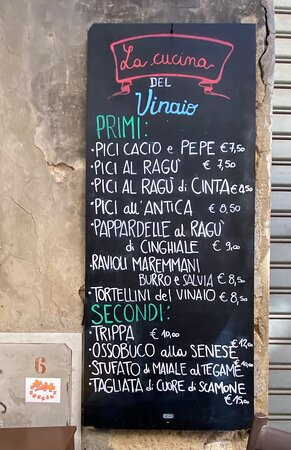 La cucina
DEL
Vinaio
PRIMI:
•PICI CACIO e PEPE €7,50
•PICI AL RAGÙ € 7,50
•PICI AL RAGÙ di CINTA €8,50
•PICI all'ANTICA € 8,50
•PAPPARDELLE al RAGÙ
di CINGHIALE € 9,00
•RAVIOLI MAREMMANI
BURRO e SALVIA € 8,50
•TORTELLINI del VINAIO € 8,50
SECONDI:
•TRIPPA € 10,00
•OSSOBUCO alla SENESE €12,00
•STUFATO di MAIALE al TEGAME €10,00
•TAGLIATA di CUORE di SCAMONE
€15,00
6